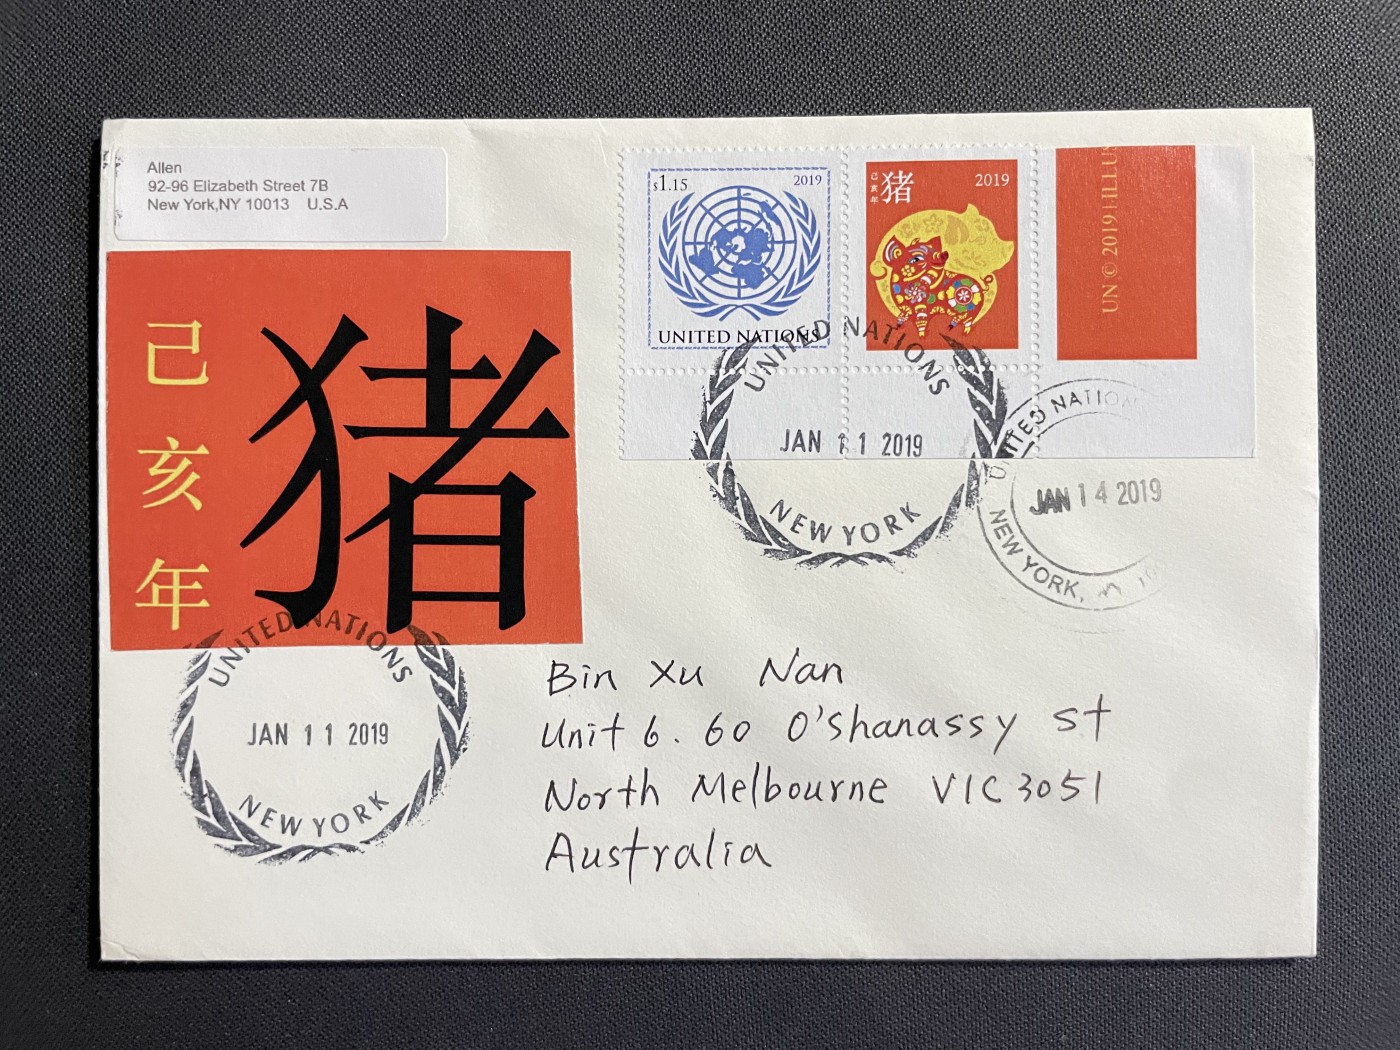 Allen
92-96 Elizabeth Street 7B
New York,NY 10013 U.S.A
$1.15
2019
UNITED NATIONS
己亥年
猪
2019
UN © 2019 | ILLUS
己亥年
猪
UNITED NATIONS
JAN 11 2019
NEW YORK
UNITED NATION
JAN 14 2019
NEW YORK,
UNITED NATIONS
JAN 11 2019
NEW YORK
Bin Xu Nan
Unit 6. 60 O'Shanassy St
North Melbourne VIC 3051
Australia